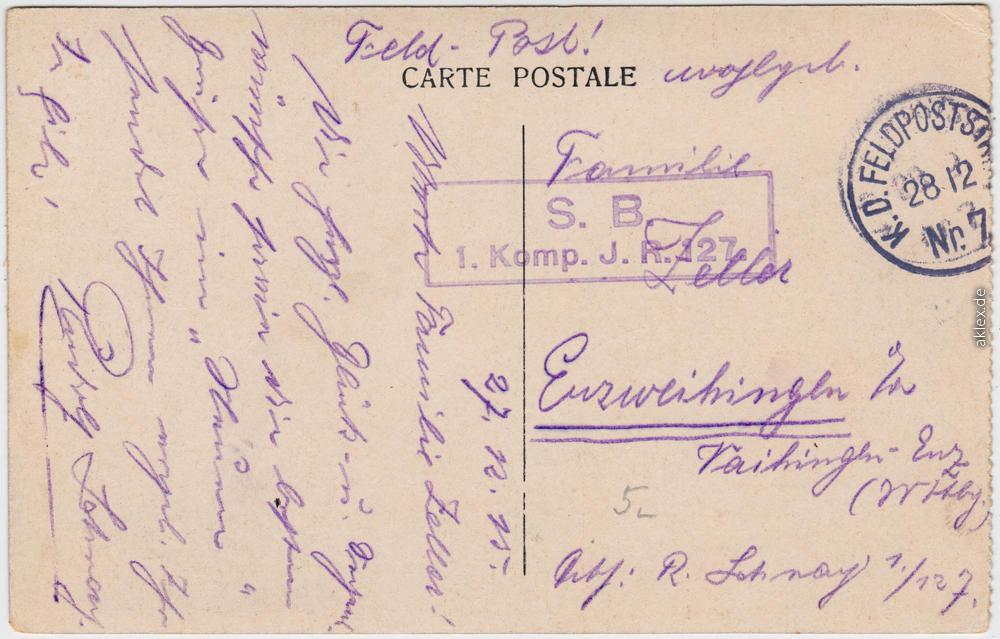 Feld-Post!
CARTE POSTALE
wohlgeb.
Familie
Zeller
Enzweihingen
Vaihingen-Enz
(Wttbg.)
Abs: R. Lohnay 1./127.
S. B.
1. Komp. J. R. 127.
K. D. FELDPOSTS
28 12
Nr. 7
5
27. 12. 15.
Werte Familie Zeller!
Die herzl. Glück- u.
wünsche sowie die besten
Grüße
sendet Ihnen Ihr
Rudolf Lohnay.
aklex.de